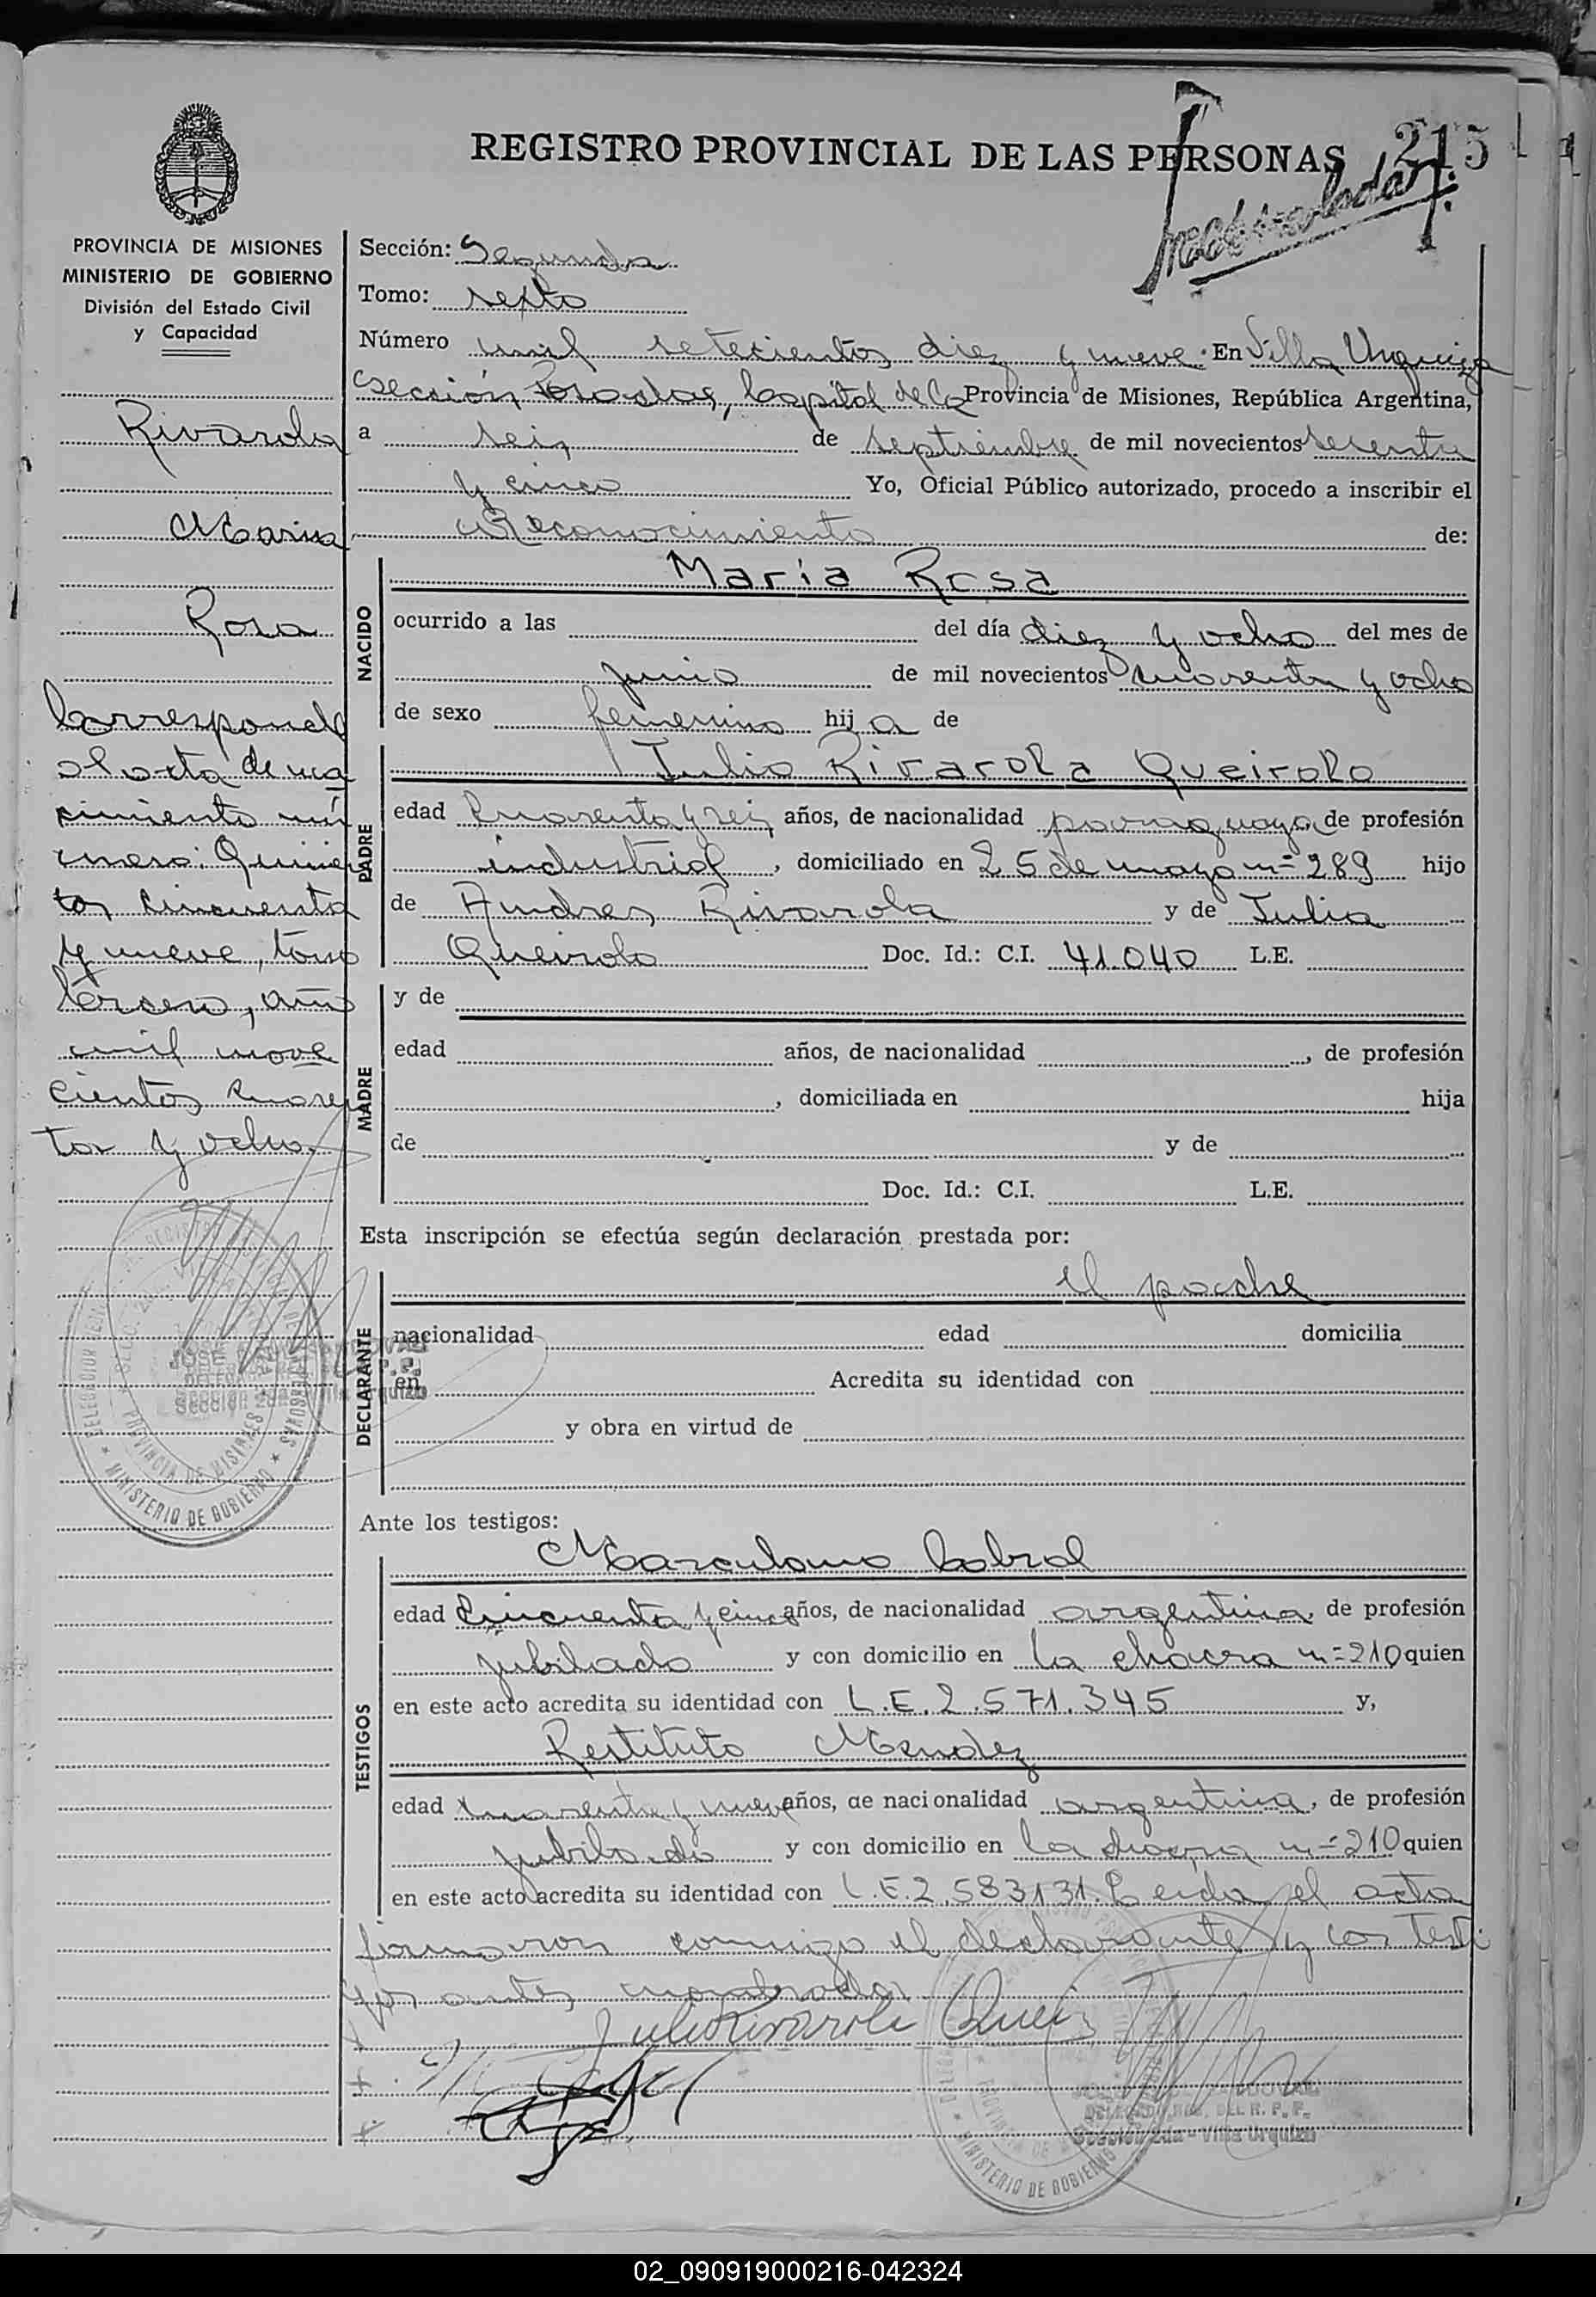 REGISTRO PROVINCIAL DE LAS PERSONAS 215
PROVINCIA DE MISIONES
MINISTERIO DE GOBIERNO
División del Estado Civil
y Capacidad
Rivarola
Maria
Rosa
Corresponde
al acta de na
cimiento nú
mero: Quinien
tos cincuenta
y nueve, tomo
tercero, año
mil nove
cientos cuaren
ta y ocho.
Sección: Segunda
Tomo: sexto
Número mil setecientos diez y nueve. En Villa Urquiza
sección Posadas, Capital de la Provincia de Misiones, República Argentina,
a seis de septiembre de mil novecientos sesenta
y cinco Yo, Oficial Público autorizado, procedo a inscribir el
Reconocimiento de:
NACIDO
María Rosa
ocurrido a las del día diez y ocho del mes de
junio de mil novecientos cuarenta y ocho
de sexo femenino hija de
PADRE
Julio Rivarola Queirolo
edad Cuarenta y seis años, de nacionalidad paraguaya de profesión
industrial, domiciliado en 25 de mayo n= 289 hijo
de Andres Rivarola y de Julia
Queirolo Doc. Id.: C.I. 41.040 L.E.
MADRE
y de
edad años, de nacionalidad , de profesión
, domiciliada en hija
de y de
Doc. Id.: C.I. L.E.
Esta inscripción se efectúa según declaración prestada por:
DECLARANTE
el padre
nacionalidad edad domicilia
en Acredita su identidad con
y obra en virtud de
MINISTERIO DE GOBIERNO
PROVINCIA DE MISIONES
Ante los testigos:
TESTIGOS
Marculano Cabral
edad Cincuenta y cinco años, de nacionalidad argentina, de profesión
jubilado y con domicilio en La chacra n=210 quien
en este acto acredita su identidad con L.E.2.571.345 y,
Restituto Mendez
edad cuarenta y nueve años, de nacionalidad argentina, de profesión
jubilado y con domicilio en la chacra n=210 quien
en este acto acredita su identidad con L.E.2.583131. Leida el acta
firmaron conmigo el declarante y los testi
gos antes nombrados
Julio Rivarola Queir
DEL R. P. P.
Sección 2da - Villa Urquiza
MINISTERIO DE GOBIERNO
02_090919000216-042324